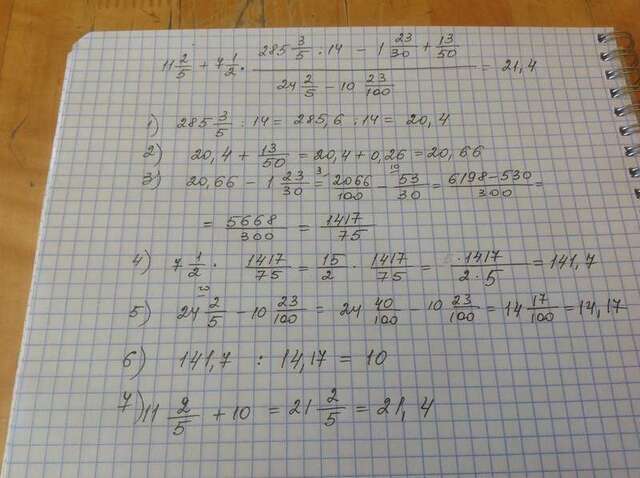 11 2/5 + 7 1/2 · (285 3/5 : 14 - 1 23/30 + 13/50) / (24 2/5 - 10 23/100) = 21,4
1) 285 3/5 : 14 = 285,6 : 14 = 20,4
2) 20,4 + 13/50 = 20,4 + 0,26 = 20,66
3) 20,66 - 1 23/30 = 2066/100 - 53/30 = 6198-530/300 =
= 5668/300 = 1417/75
4) 7 1/2 · 1417/75 = 15/2 · 1417/75 = 1417/2·5 = 141,7
5) 24 2/5 - 10 23/100 = 24 40/100 - 10 23/100 = 14 17/100 = 14,17
6) 141,7 : 14,17 = 10
7) 11 2/5 + 10 = 21 2/5 = 21,4